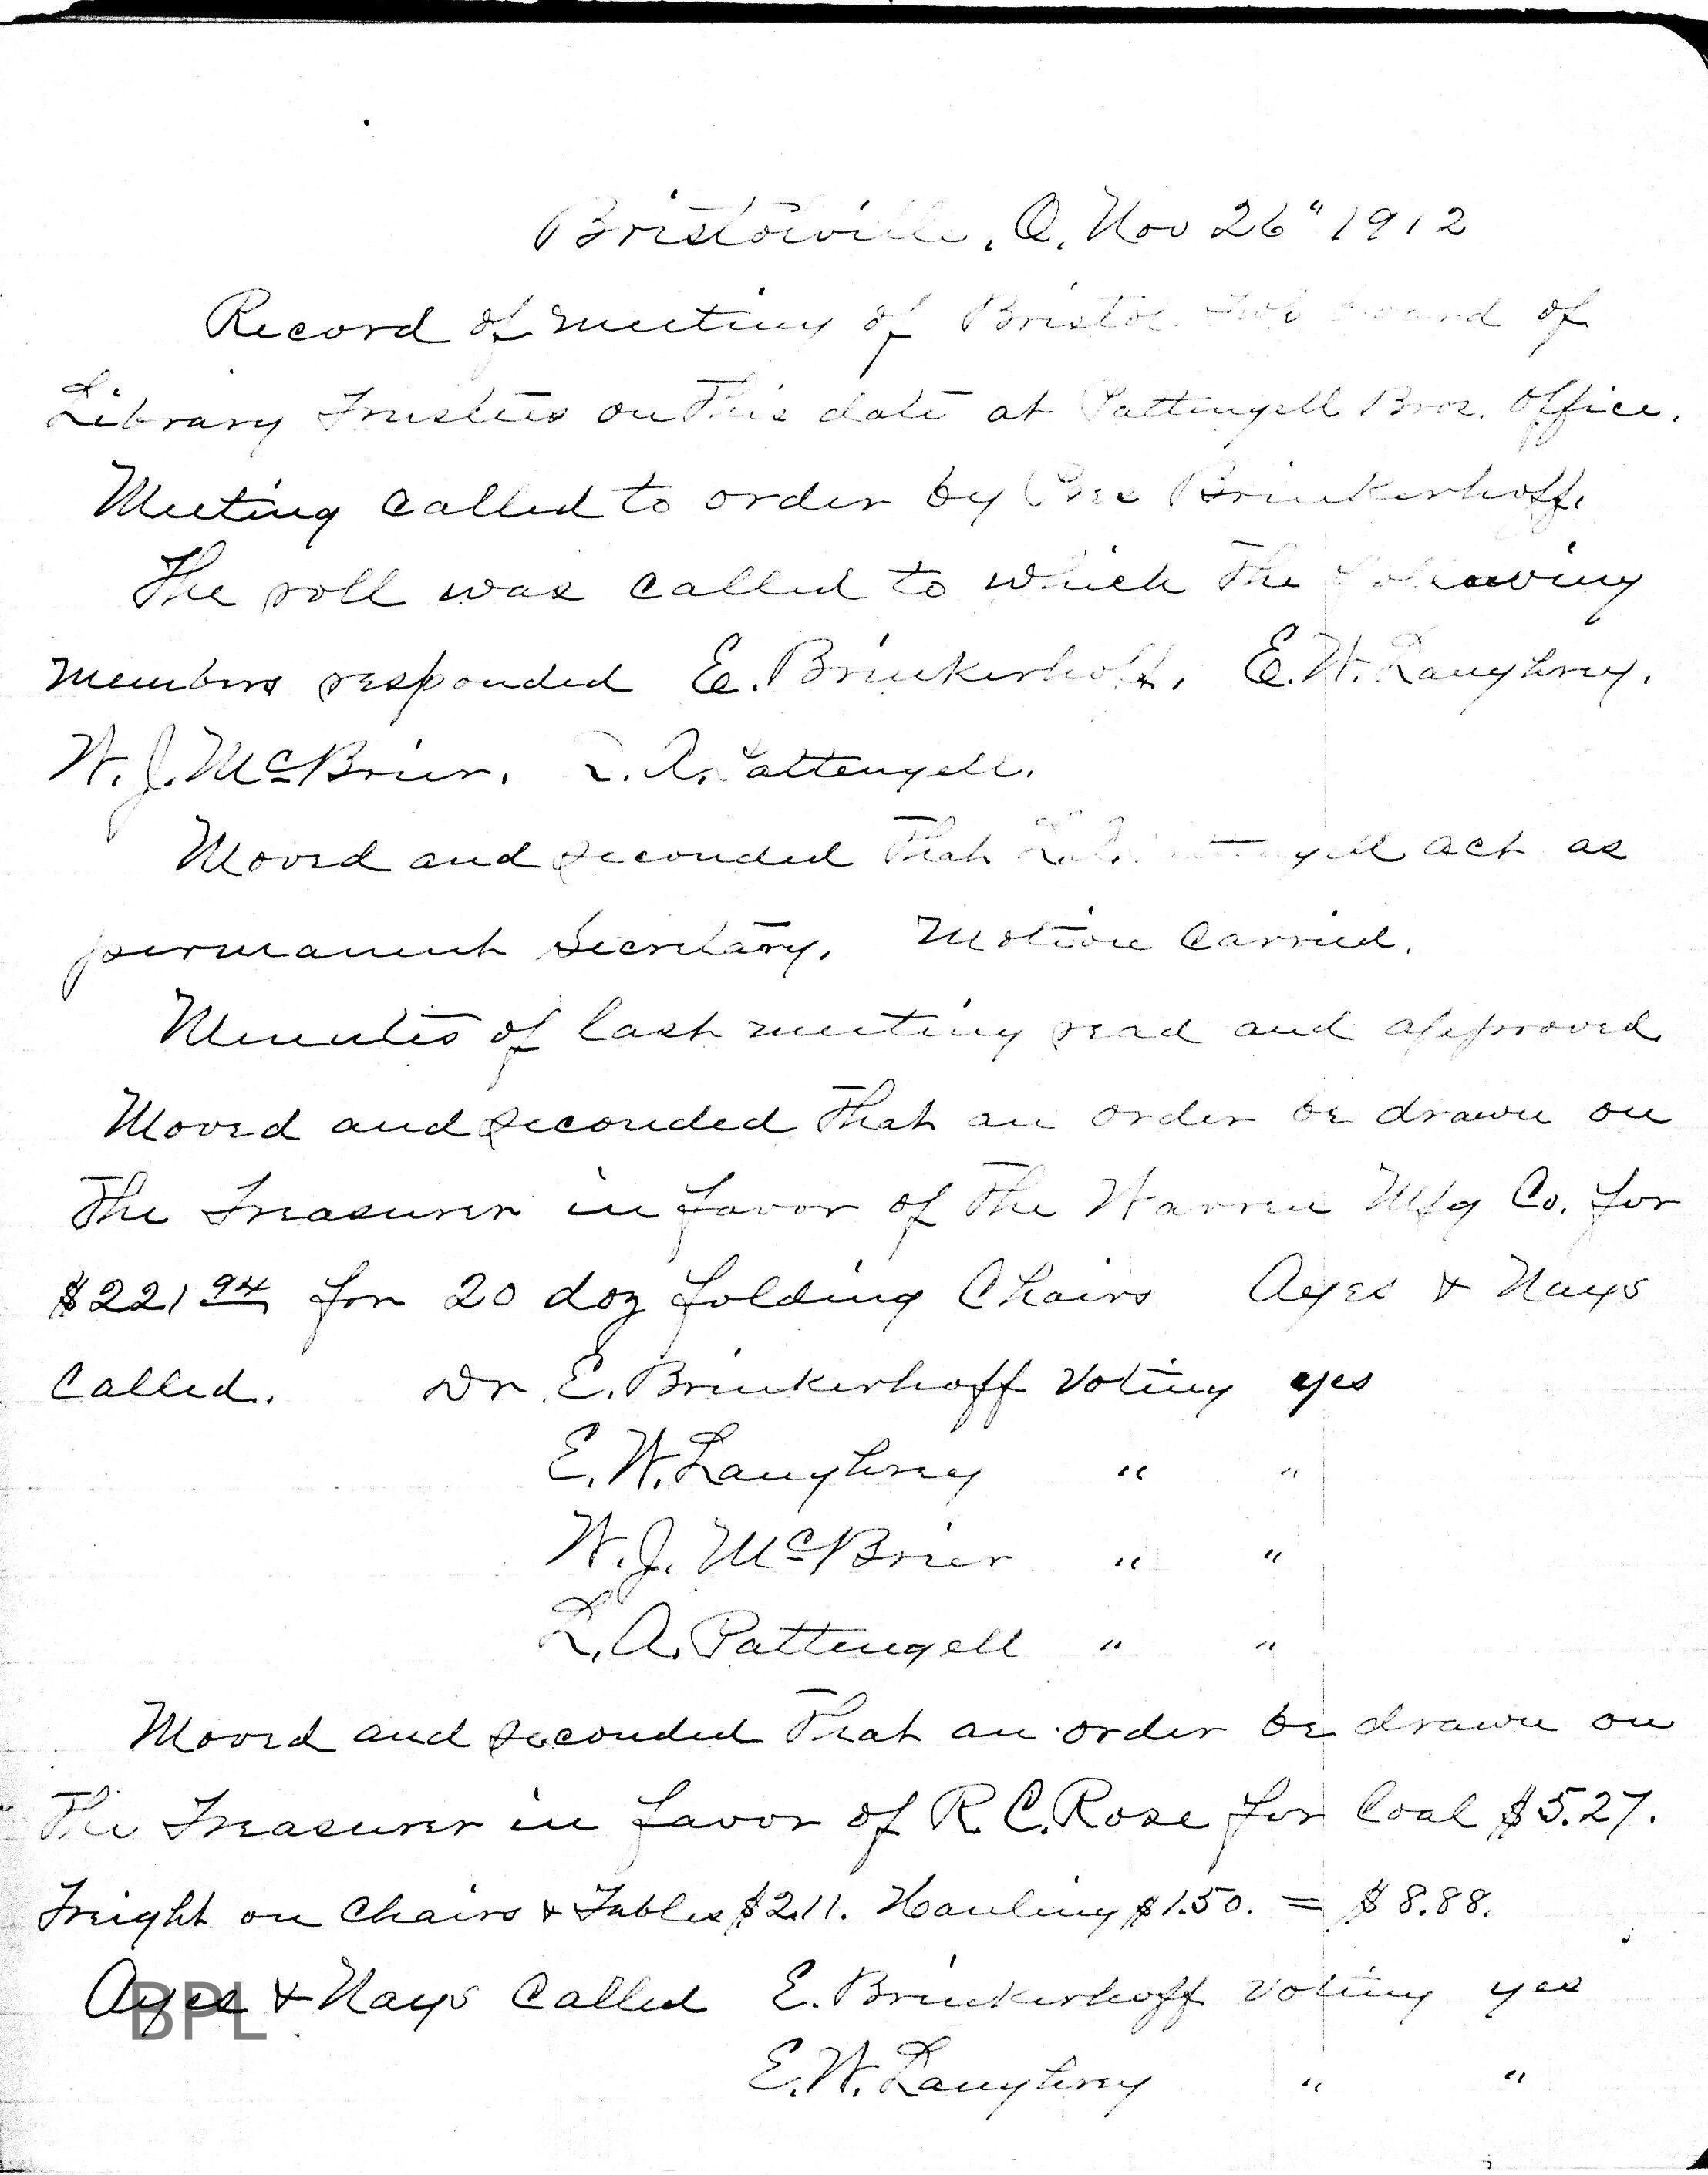 Bristolville, O. Nov 26" 1912
Record of meeting of Bristol Twp board of
Library Trustees on This date at Pattengell Bros. Office.
Meeting Called to order by Pres Brinkerhoff.
The roll was called to which The following
members responded E. Brinkerhoff, E. W. Laughrey.
W. J. McBrier. L. A. Pattengell.
Moved and seconded That L. A. Pattengell act as
permanent Secretary. Motion Carried.
Minutes of last meeting read and approved
Moved and seconded That an order be drawn on
The Treasurer in favor of The Warren Mfg Co. for
$221 94 for 20 doz folding Chairs Ayes & Nays
Called. Dr E. Brinkerhoff Voting yes
E. W. Laughrey " "
W. J. McBrier " "
L. A. Pattengell " "
Moved and seconded That an order be drawn on
The Treasurer in favor of R. C. Rose for Coal $5.27.
Freight on Chairs & Tables $2.11. Hauling $1.50. = $8.88.
Ayes & Nays Called E. Brinkerhoff Voting yes
E. W. Laughrey " "
BPL